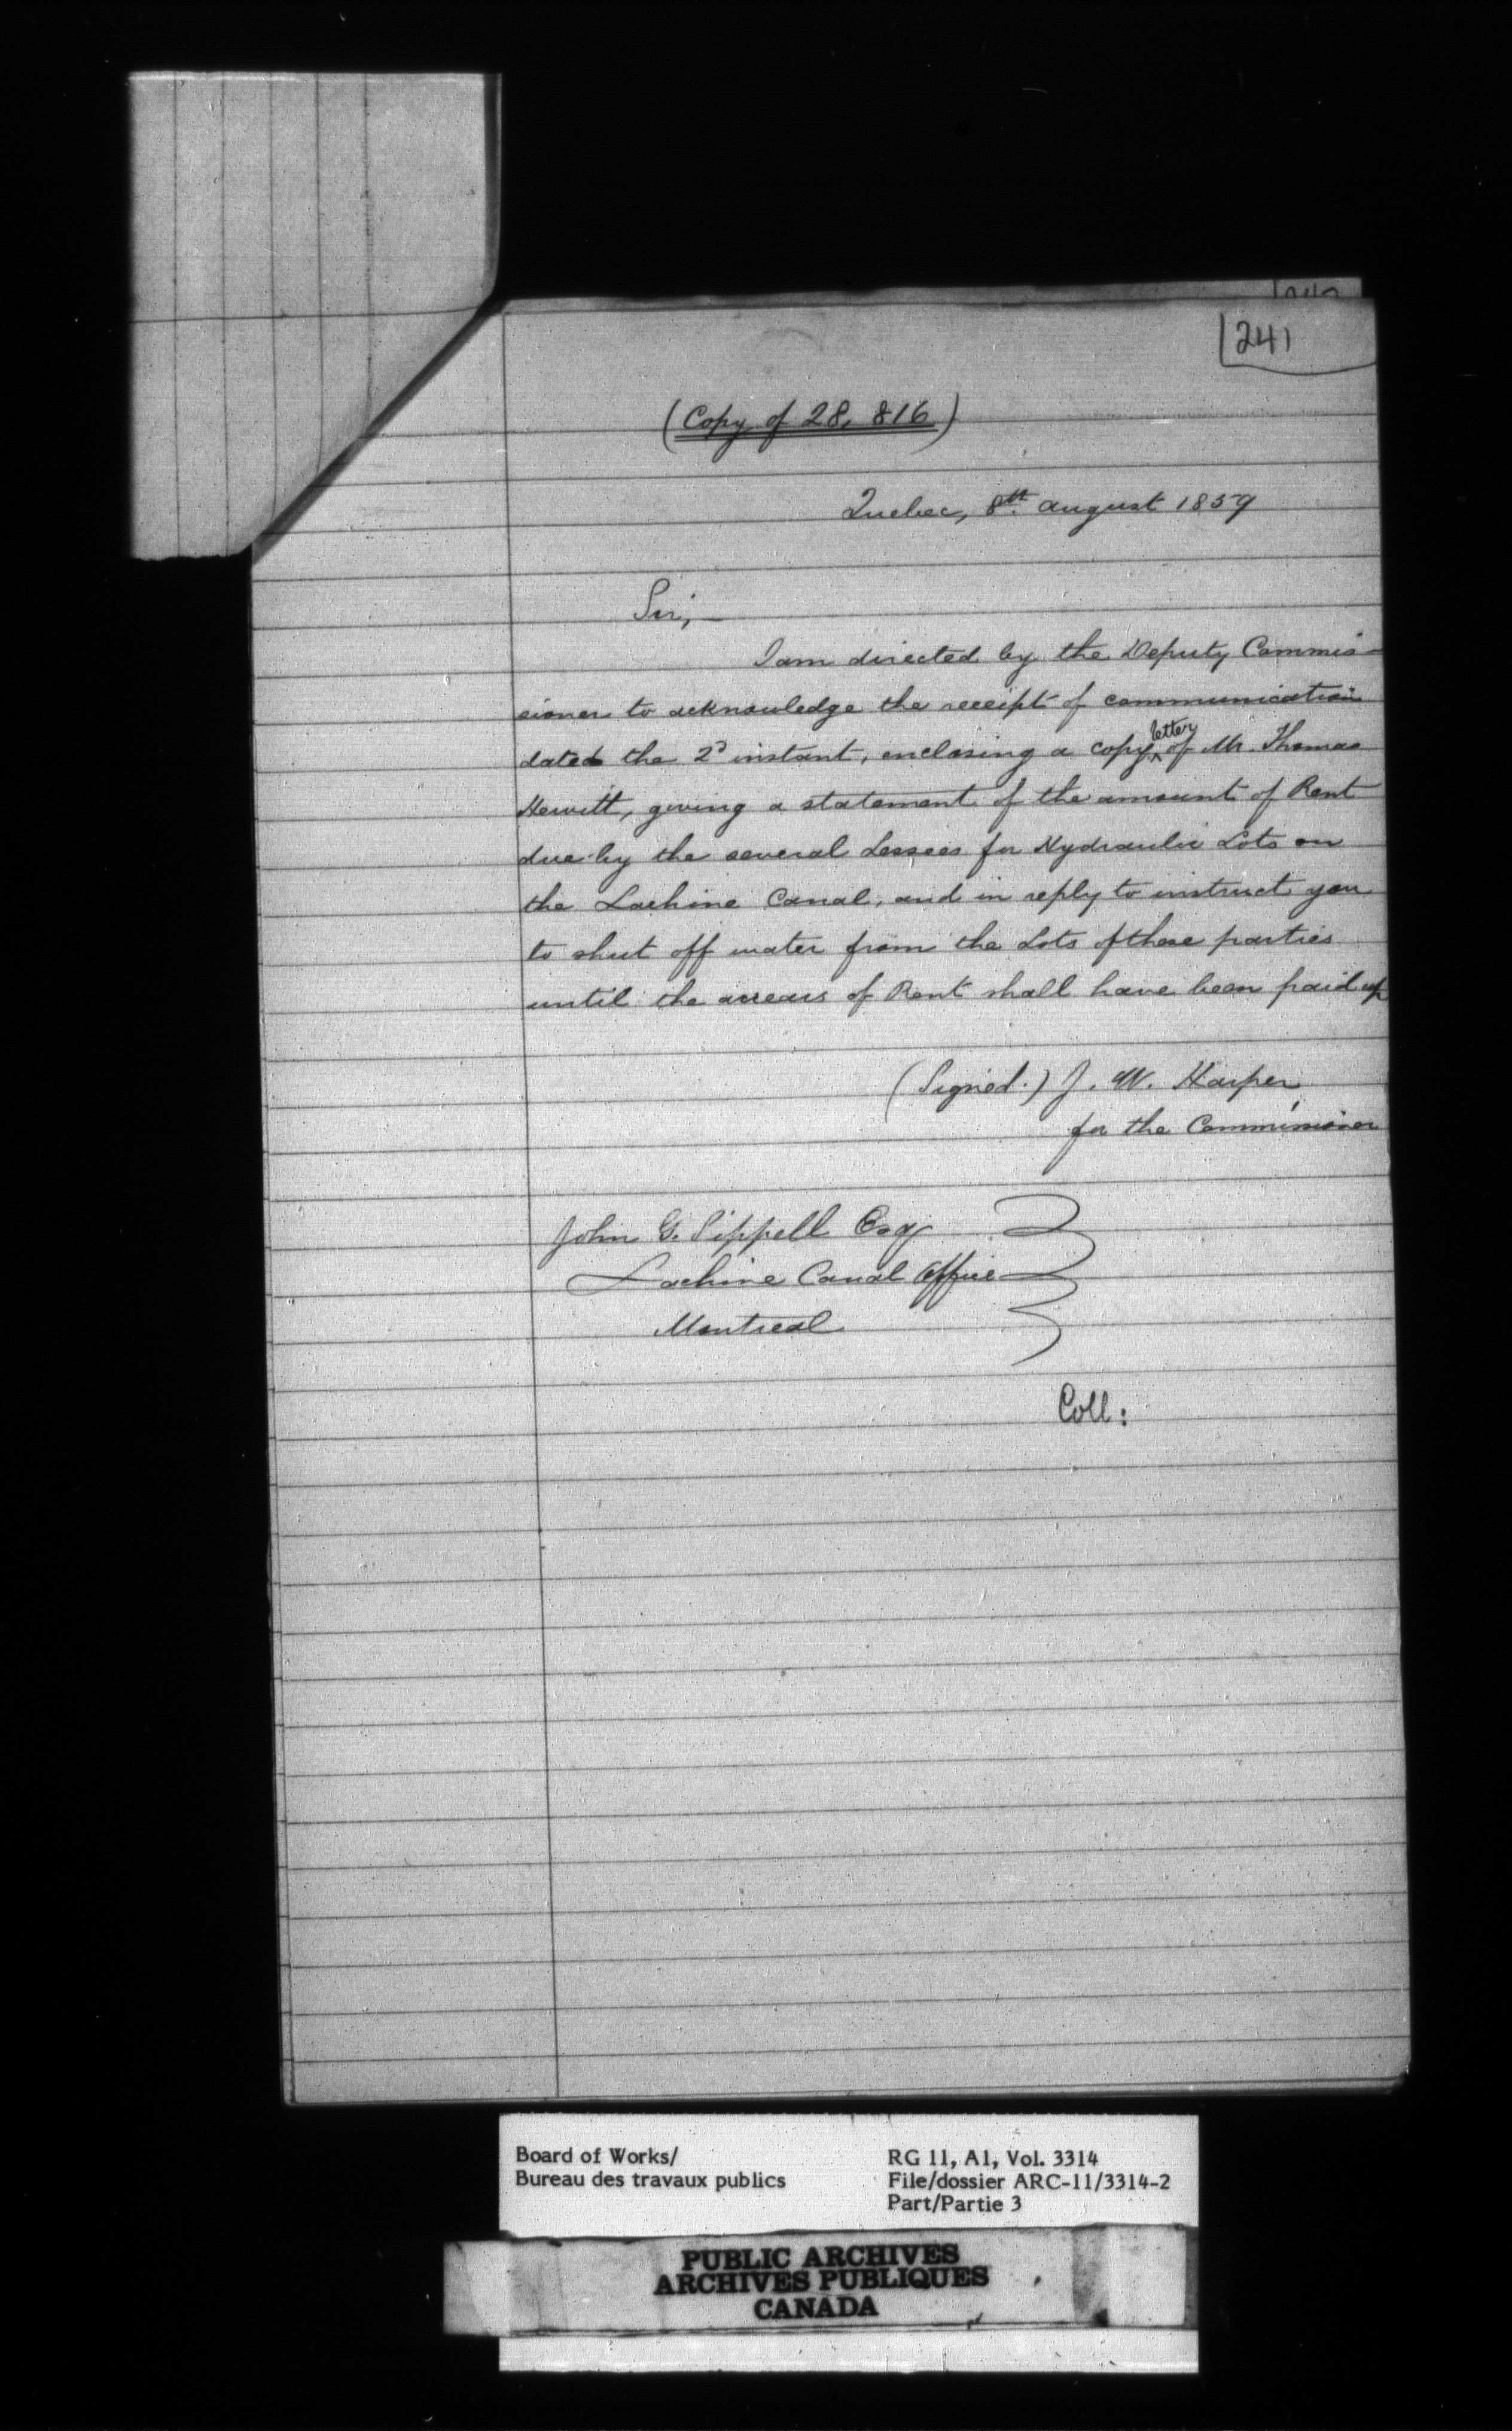 241
(Copy of 28,816)
Quebec, 8th. august 1859
Sir,—
I am directed by the Deputy Commis-
sioner to acknowledge the receipt of communication
dated the 2d instant, enclosing a copy ^ letter of Mr. Thomas
Hewitt, giving a statement of the amount of Rent
due by the several Lessees for Hydraulic Lots on
the Lachine Canal, and in reply to instruct you
to shut off water from the Lots of these parties
until the arrears of Rent shall have been paid up
(Signed.) J. W. Harper
for the Commissioner
John G. Sippell Esq
Lachine Canal Office
Montreal
Coll:
Board of Works/
Bureau des travaux publics
RG 11, A1, Vol. 3314
File/dossier ARC-11/3314-2
Part/Partie 3
PUBLIC ARCHIVES
ARCHIVES PUBLIQUES
CANADA